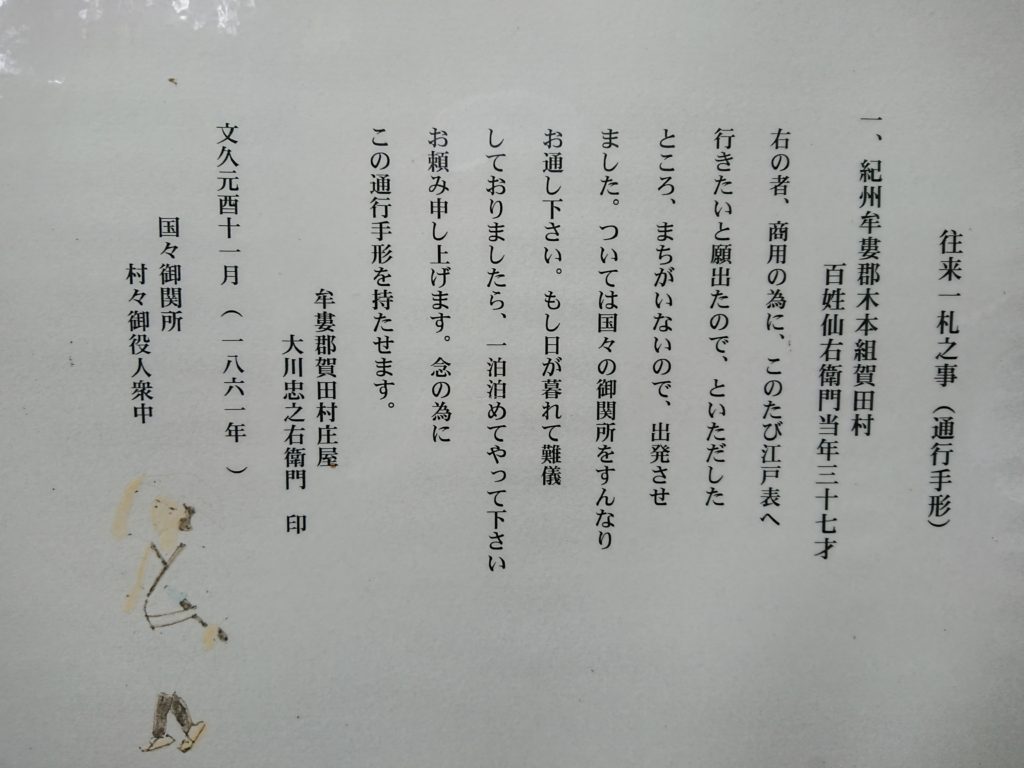 往来一札之事（通行手形）
一、紀州牟婁郡木本組賀田村
百姓仙右衛門当年三十七才
右の者、商用の為に、このたび江戸表へ
行きたいと願出たので、といただした
ところ、まちがいないので、出発させ
ました。ついては国々の御関所をすんなり
お通し下さい。もし日が暮れて難儀
しておりましたら、一泊泊めてやって下さい
お頼み申し上げます。念の為に
この通行手形を持たせます。
牟婁郡賀田村庄屋
大川忠之右衛門　印
文久元酉十一月（一八六一年　）
国々御関所
村々御役人衆中